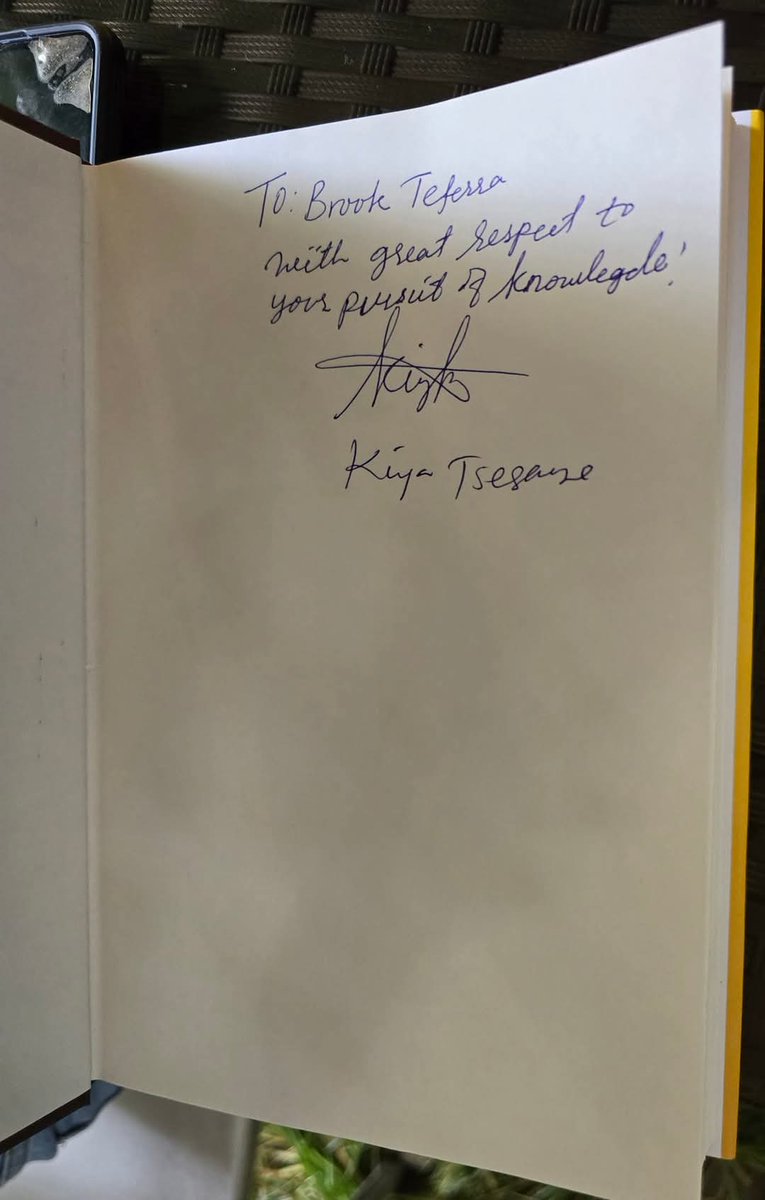 To: Brook Teferra
with great respect to
your pursuit of knowlegde!
Kiya Tsegaye